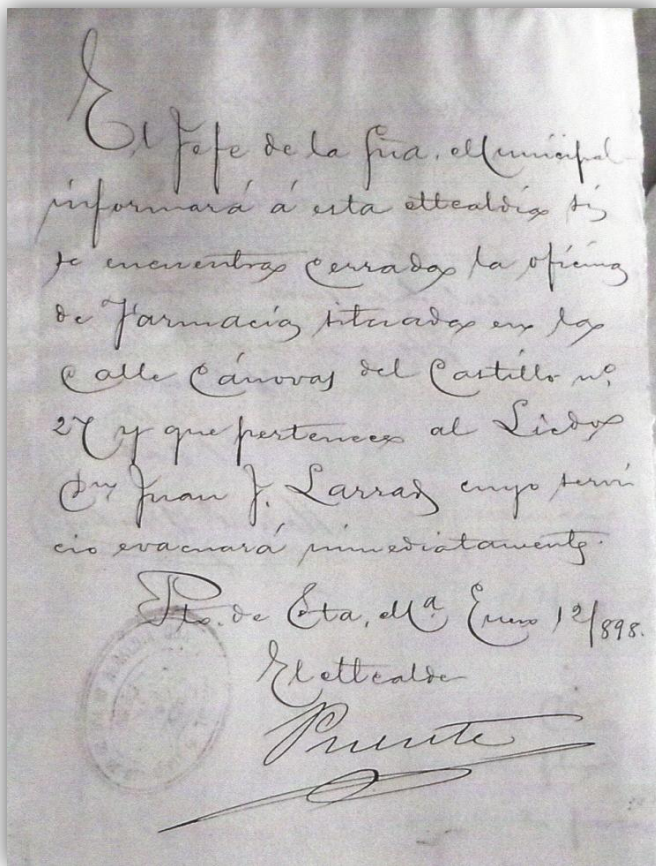 El Jefe de la Gua. Municipal
informará á esta Alcaldia si
se encuentra cerrada la oficina
de Farmacia situada en la
Calle Cánovas del Castillo nº
27 y que pertenece al Licdo
Dn Juan J. Larrad cuyo servi
cio evacuará inmediatamente.
Pto. de Sta. Mª Enero 12/898.
El Alcalde
Puente